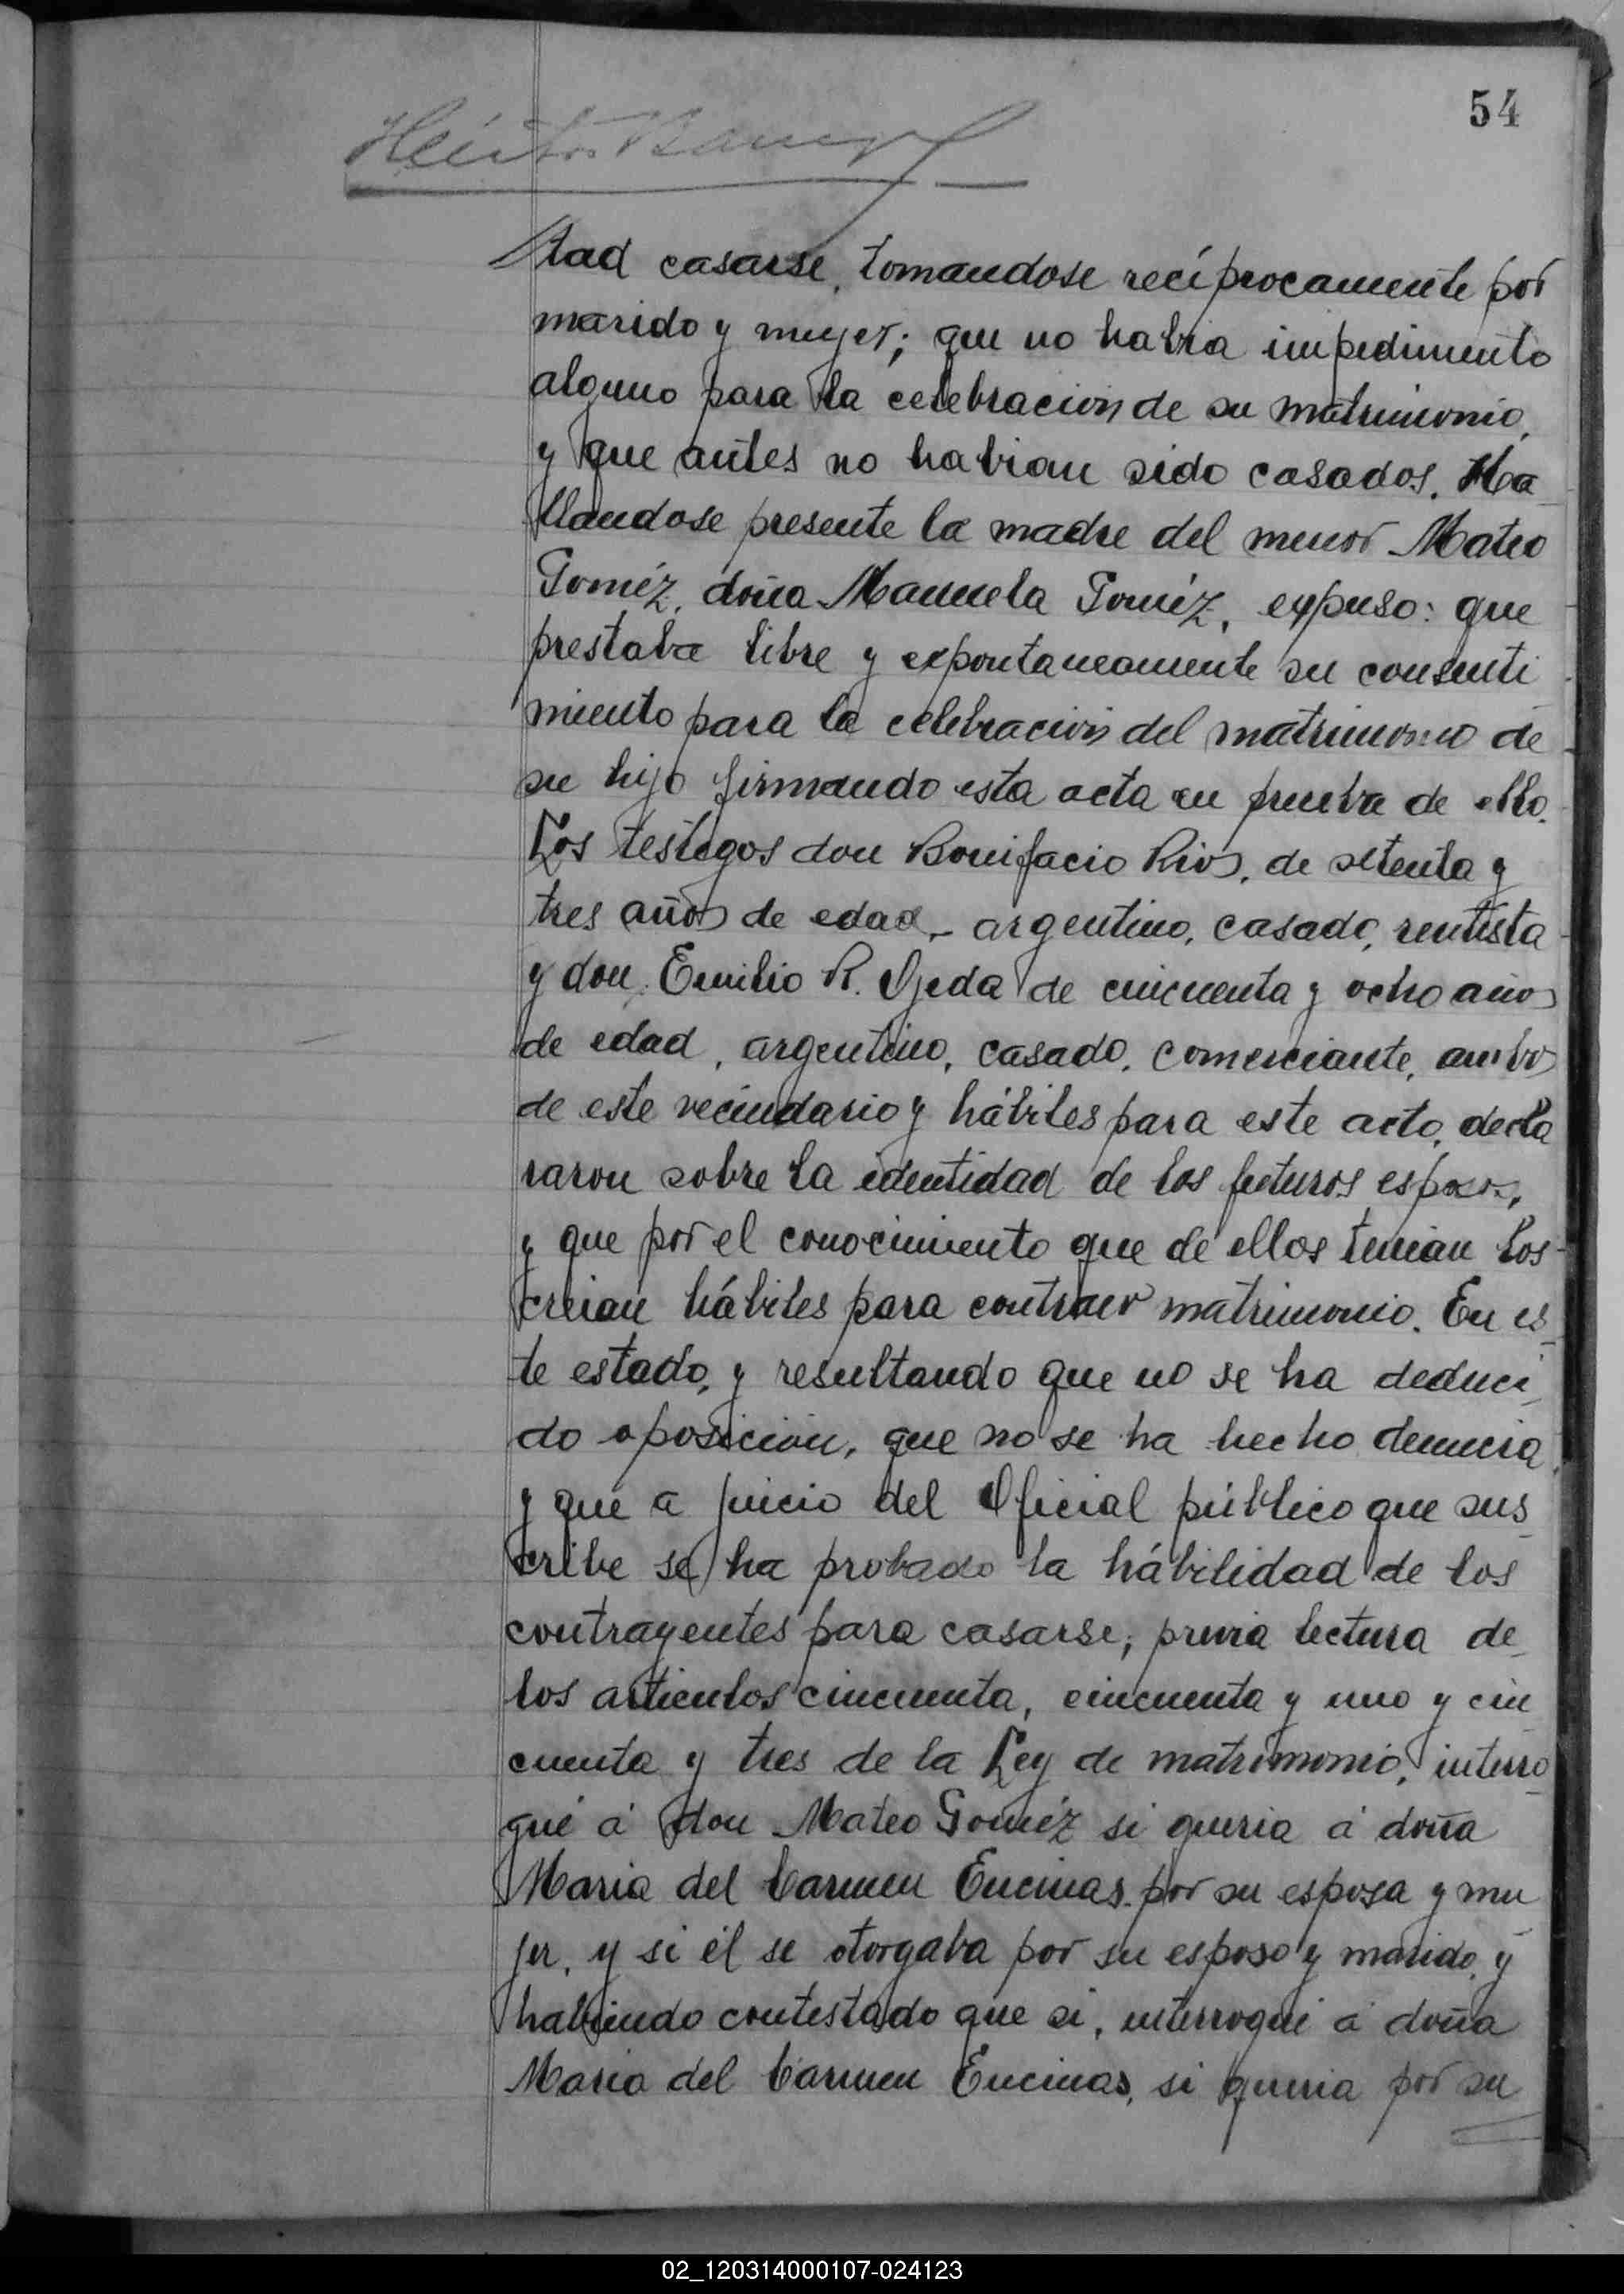 54
tad casarse, tomandose recíprocamente por
marido y mujer; que no habia impedimento
alguno para la celebracion de su matrimonio,
y que antes no habian sido casados. Ha
llandose presente la madre del menor Mateo
Goméz, doña Manuela Goméz, expuso: que
prestaba libre y expontaneamente su consenti
miento para la celebracion del matrimonio de
su hijo firmando esta acta en prueba de ello.
Los testigos don Bonifacio Rios, de setenta y
tres años de edad, argentino, casado, rentista
y don Emilio R. Ojeda de cincuenta y ocho años
de edad, argentino, casado, comerciante, ambos
de este vecindario y hábiles para este acto, decla
raron sobre la identidad de los futuros esposos,
y que por el conocimiento que de ellos tenian los
creian hábiles para contraer matrimonio. En es
te estado, y resultando que no se ha deduci
do oposicion, que no se ha hecho denuncia,
y que a juicio del Oficial público que sus
cribe se ha probado la hábilidad de los
contrayentes para casarse; previa lectura de
los articulos cincuenta, cincuenta y uno y cin
cuenta y tres de la Ley de matrimonio, interro
gué á don Mateo Goméz si queria á doña
Maria del Carmen Encinas por su esposa y mu
jer, y si él se otorgaba por su esposo y marido, y
habiendo contestado que si, interrogué á doña
Maria del Carmen Encinas, si queria por su
02_120314000107-024123